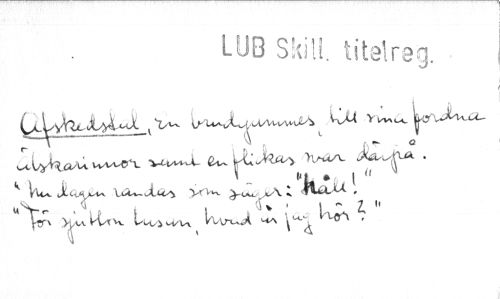 LUB Skill. titelreg.
Afskedstal, En brudgummes, till sina fordna
älskarinnor samt en flickas svar därpå.
"Nu dagen randas som säger: "håll!"
"För sjutton tusan, hvad är jag hör?"